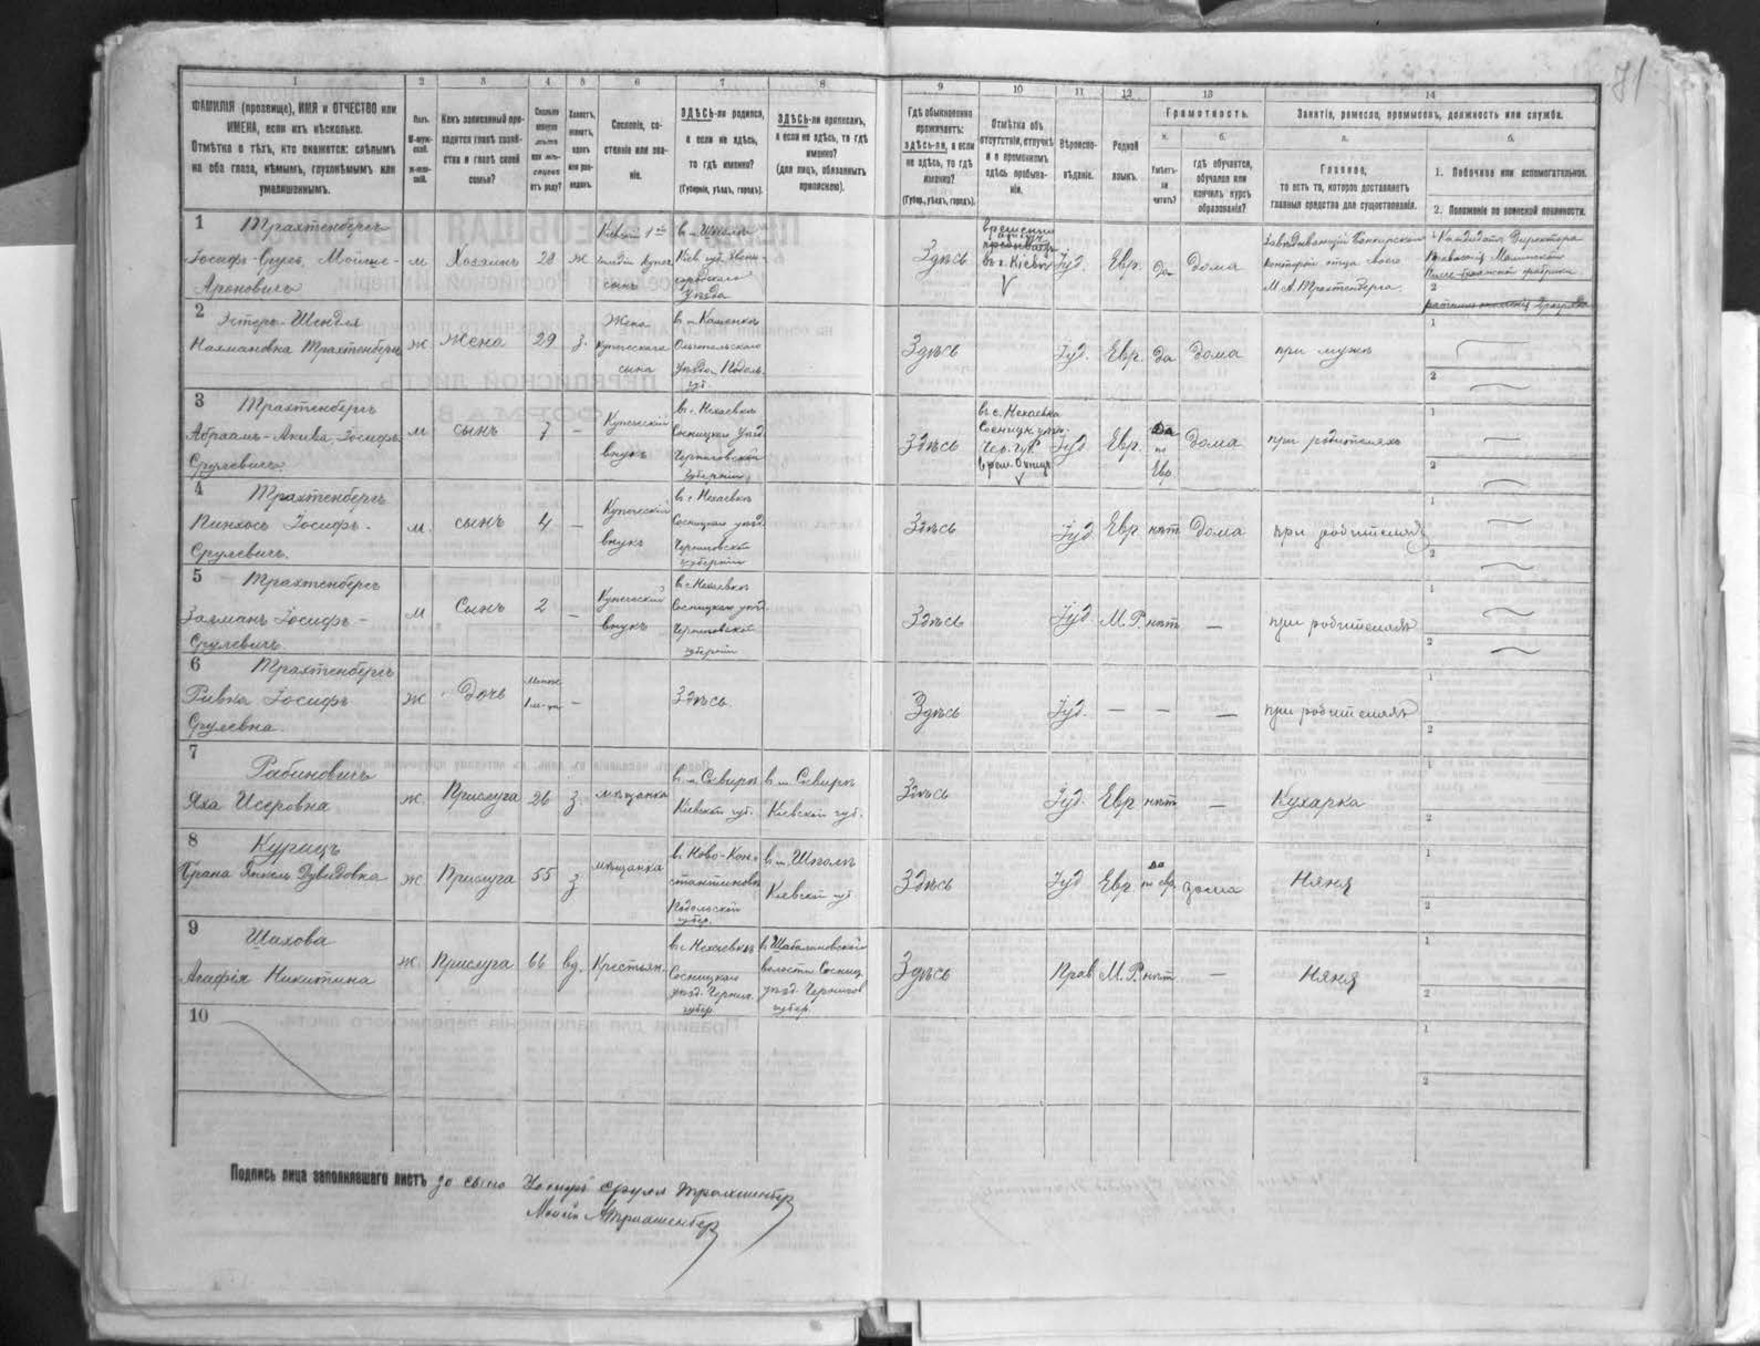 71
1 2 3 4 5 6 7 8 9 10 11 12 13 14
ФАМИЛІЯ (прозвище), ИМЯ и ОТЧЕСТВО или
ИМЕНА, если ихъ нѣсколько.
Отмѣтка о тѣхъ, кто окажется: слѣпымъ
на оба глаза, нѣмымъ, глухонѣмымъ или
умалишеннымъ.
Полъ.
М-муж-
ской.
Ж-жен-
скій.
Какъ записанный при-
ходится главѣ хозяй-
ства и главѣ своей
семьи?
Сколько
минуло
лѣтъ
или мѣ-
сяцевъ
отъ роду?
Холостъ,
женатъ,
вдовъ
или раз-
веденъ.
Сословіе, со-
стояніе или зва-
ніе.
ЗДѢСЬ-ли родился,
а если не здѣсь,
то гдѣ именно?
(Губернія, уѣздъ, городъ).
ЗДѢСЬ-ли приписанъ,
а если не здѣсь, то гдѣ
именно?
(для лицъ, обязанныхъ
припискою).
Гдѣ обыкновенно
проживаетъ:
здѣсь-ли, а если
не здѣсь, то гдѣ
именно?
(Губер., уѣздъ, городъ).
Отмѣтка объ
отсутствіи, отлучкѣ
и о временномъ
здѣсь пребыва-
ніи.
Вѣроиспо-
вѣданіе.
Родной
языкъ.
Грамотность.
а.
Умѣетъ-
ли
читать?
б.
гдѣ обучается,
обучался или
кончилъ курсъ
образованія?
Занятіе, ремесло, промыселъ, должность или служба.
а.
Главное,
то есть то, которое доставляетъ
главныя средства для существованія.
б.
1. Побочное или вспомогательное.
2. Положеніе по воинской повинности.
1 Трахтенбергъ
Іосифъ-Сруль Мойше-
Ароновичъ
м Хозяинъ 28 ж
Кіевскій 1й
гильдіи купец
сынъ
в м. Шполѣ
Кіев. губ. Звени-
городскаго
Уѣзда
Здѣсь
въ г. Кіевѣ
Іуд. Евр. да дома
Завѣдывающій банкирской
конторой отца своего
М. А. Трахтенберга
1 Кандидатъ Директора
2
2
Эстеръ-Шендля
Нахмановна Трахтенбергъ
ж жена 29 з.
Жена
купеческаго
сына
в м. Каменкѣ
Ольгопольскаго
Уѣзда Подоль.
губ.
Здѣсь Іуд. Евр. да дома при мужѣ
1
2
3 Трахтенбергъ
Абраамъ-Акива Іосифъ
Срулевичъ
м сынъ 7 –
Купеческій
внукъ
в с. Нехаевкѣ
Сосницкаго Уѣзд.
Черниговской
губерніи
Здѣсь
въ с. Нехаевка
Сосницк. уѣз.
Чер. губ.
Іуд. Евр.
да
по
Евр.
дома при родителяхъ
1
2
4 Трахтенбергъ
Пинхосъ Іосифъ-
Срулевичъ.
м. сынъ 4 –
Купеческій
внукъ
в с. Нехаевкѣ
Сосницкаго уѣзд.
Черниговской
губерніи
Здѣсь Іуд. Евр нѣт дома при родителяхъ
1
2
5 Трахтенбергъ
Залманъ Іосифъ-
Срулевичъ.
м Сынъ 2 –
Купеческій
внукъ
в с. Нехаевкѣ
Сосницкаго уѣзд.
Черниговской
губерніи
Здѣсь Іуд. М.Р. нѣт – при родителяхъ
1
2
6 Трахтенбергъ
Ривка Іосифъ
Срулевна.
ж Дочь – Здѣсь.
Здѣсь Іуд. – – – при родителяхъ
1
2
7
Рабиновичъ
Яха Исеровна
ж. Прислуга 26 з. мѣщанка
в м. Сквирѣ
Кіевской губ.
в м. Сквирѣ
Кіевской губ.
Здѣсь Іуд. Евр нѣт – Кухарка
1
2
8 Курицъ
Грана Янкель Дувидовна
ж Прислуга 55 з мѣщанка
в. Ново-Кон-
стантиновѣ
Подольской
губер.
в м. Шполѣ
Кіевской губ.
Здѣсь Іуд Евр.
да
по евр.
дома Няня
1
2
9
Шахова
Агафія Никитина
ж. Прислуга 66 вд. Крестьян.
в с. Нехаевкѣ
Сосницкаго
уѣзд. Черниг.
губер
в Шабалиновской
волости Сосниц.
уѣзд. Чернигов
губер.
Здѣсь Прав М.Р. нѣт. – Няня
1
2
10
1
2
Подпись лица заполнявшаго листъ за сына Іосифъ Сруля Трахтенберг
Мойсе А Трахтенберг